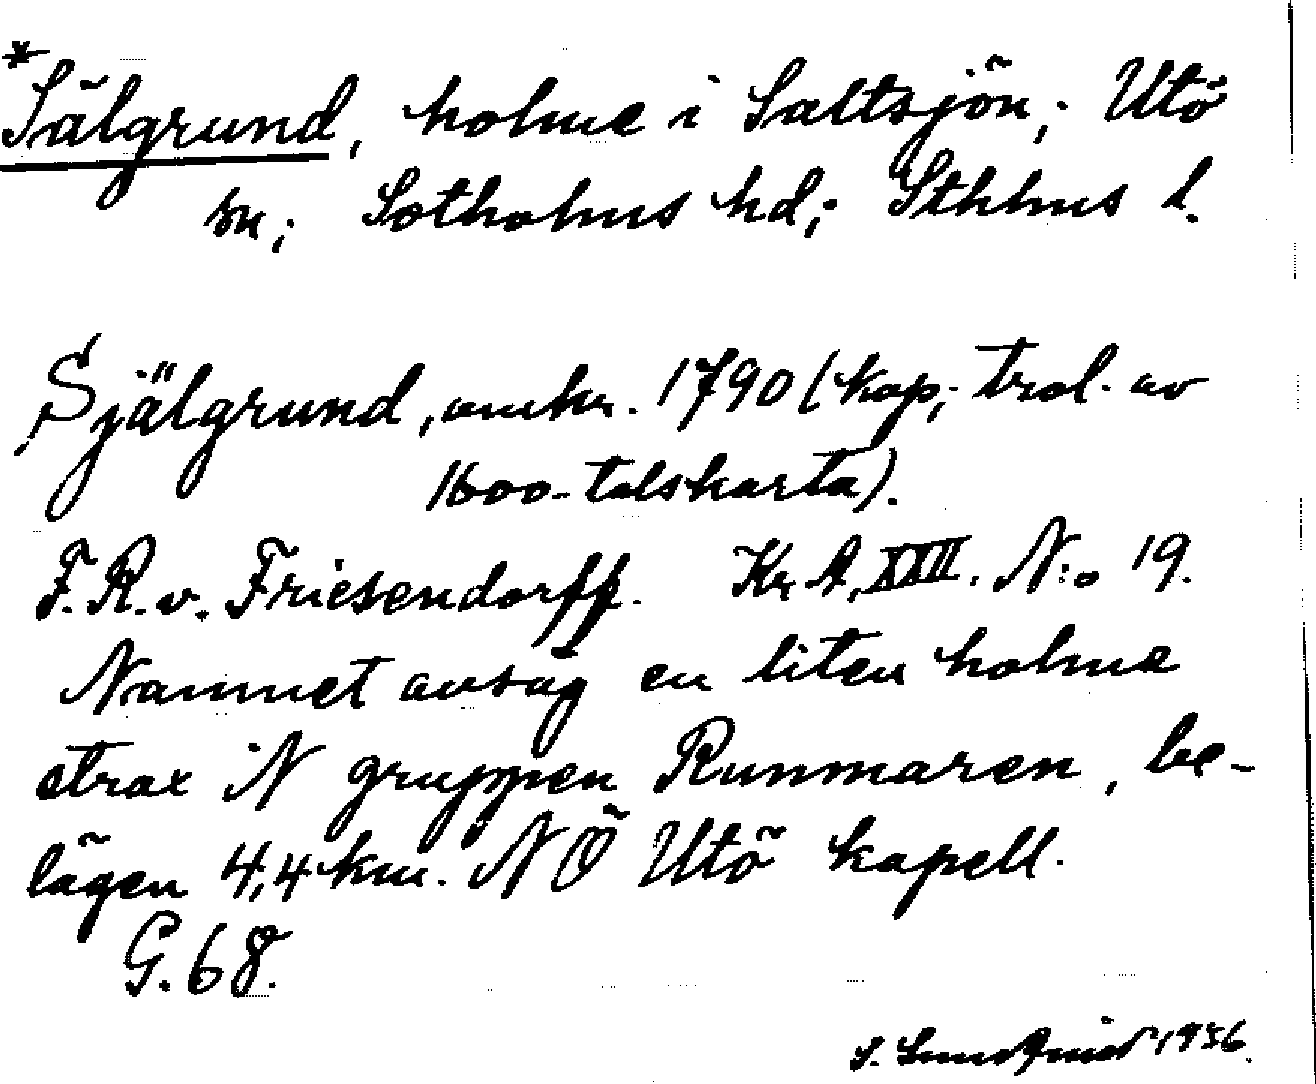 *Sälgrund, holme i Saltsjön; Utö
sn; Sotholms hd; Sthlms l.
Själgrund, omkr. 1790 (kop; trol. av
1600-talskarta).
F.R.v. Friesendorff. Kr.A. XXII. N:o 19.
Namnet avsåg en liten holme
strax N gruppen Runmaren, be-
lägen 4,4 km. NÖ Utö kapell.
G.68.
S. 1936.